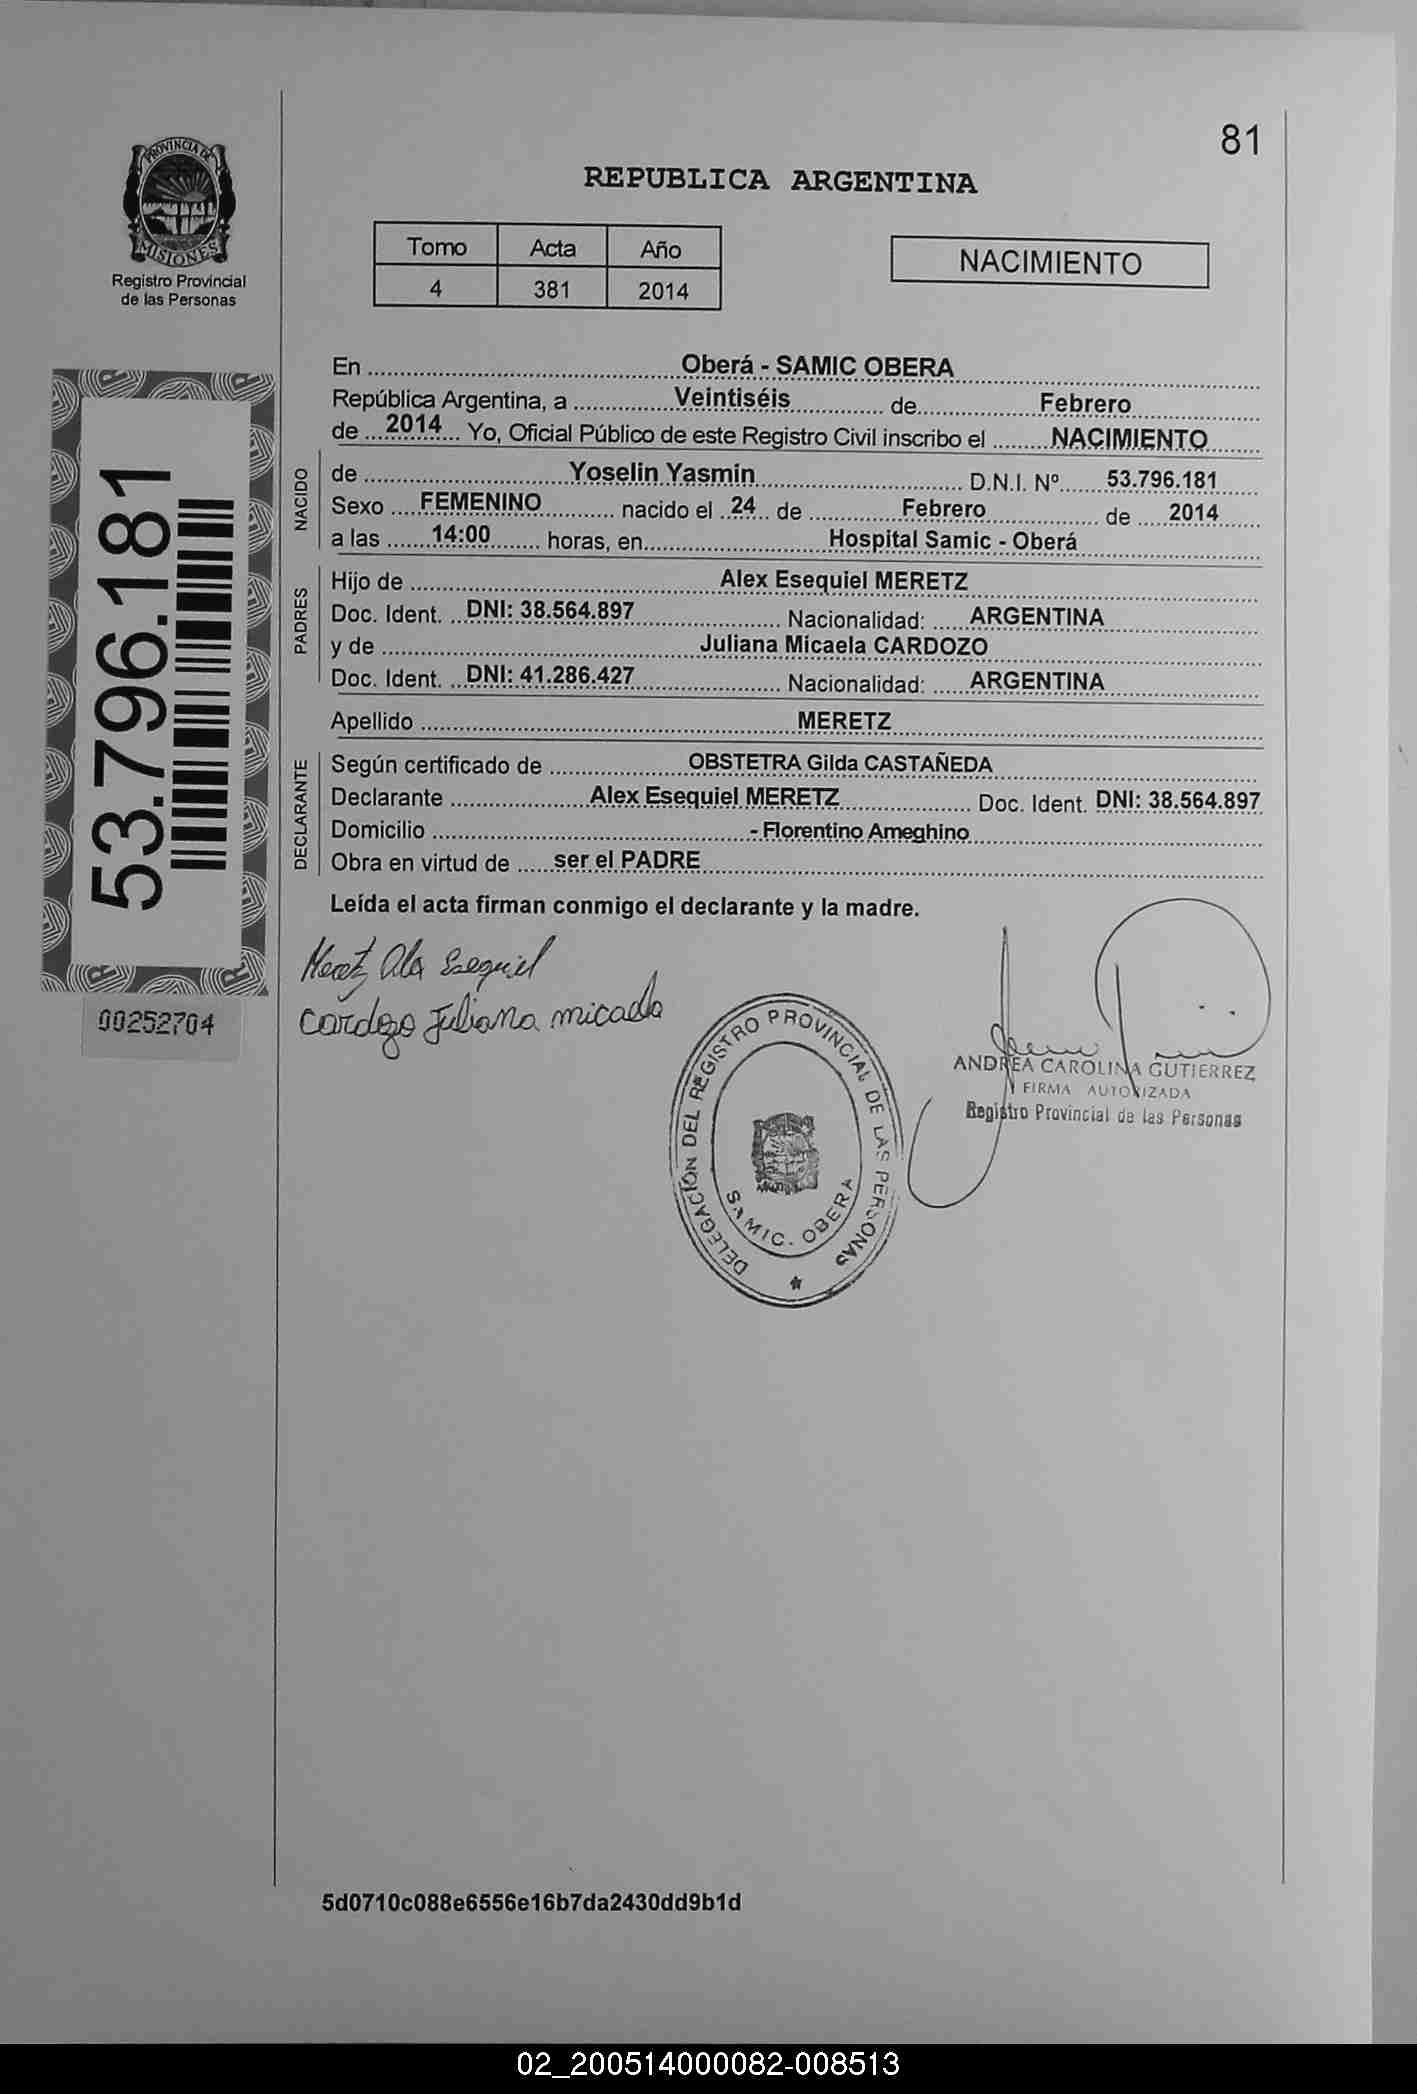 81
PROVINCIA DE
MISIONES
Registro Provincial
de las Personas
REPUBLICA ARGENTINA
Tomo Acta Año
4 381 2014
NACIMIENTO
53.796.181
00252704
En Oberá - SAMIC OBERA
República Argentina, a Veintiséis de Febrero
de 2014 Yo, Oficial Público de este Registro Civil inscribo el NACIMIENTO
NACIDO
de Yoselin Yasmin D.N.I. Nº 53.796.181
Sexo FEMENINO nacido el 24 de Febrero de 2014
a las 14:00 horas, en Hospital Samic - Oberá
PADRES
Hijo de Alex Esequiel MERETZ
Doc. Ident. DNI: 38.564.897 Nacionalidad: ARGENTINA
y de Juliana Micaela CARDOZO
Doc. Ident. DNI: 41.286.427 Nacionalidad: ARGENTINA
Apellido MERETZ
DECLARANTE
Según certificado de OBSTETRA Gilda CASTAÑEDA
Declarante Alex Esequiel MERETZ Doc. Ident. DNI: 38.564.897
Domicilio - Florentino Ameghino
Obra en virtud de ser el PADRE
Leída el acta firman conmigo el declarante y la madre.
Meretz Alex Esequiel
Cardozo Juliana micaela
DELEGACIÓN DEL REGISTRO PROVINCIAL DE LAS PERSONAS
SAMIC. OBERA
ANDREA CAROLINA GUTIERREZ
FIRMA AUTORIZADA
Registro Provincial de las Personas
5d0710c088e6556e16b7da2430dd9b1d
02_200514000082-008513